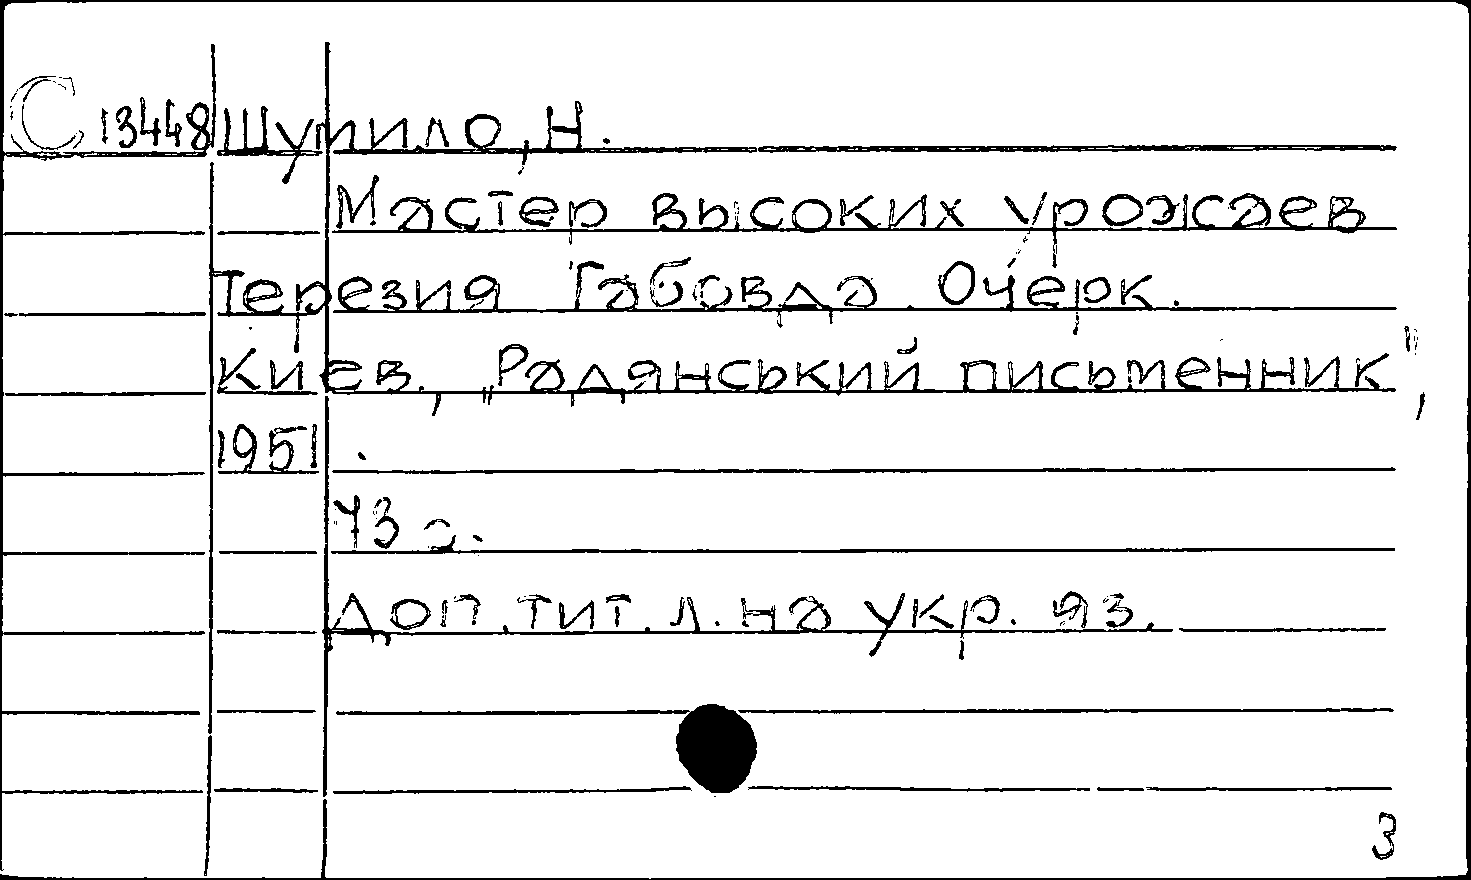 С 13448 Шумило, Н.
Мастер высоких урожаев
Терезия Габовда. Очерк.
Киев, „Радянський письменник",
1951.
43 с.
Доп. тит. л. на укр. яз.
3